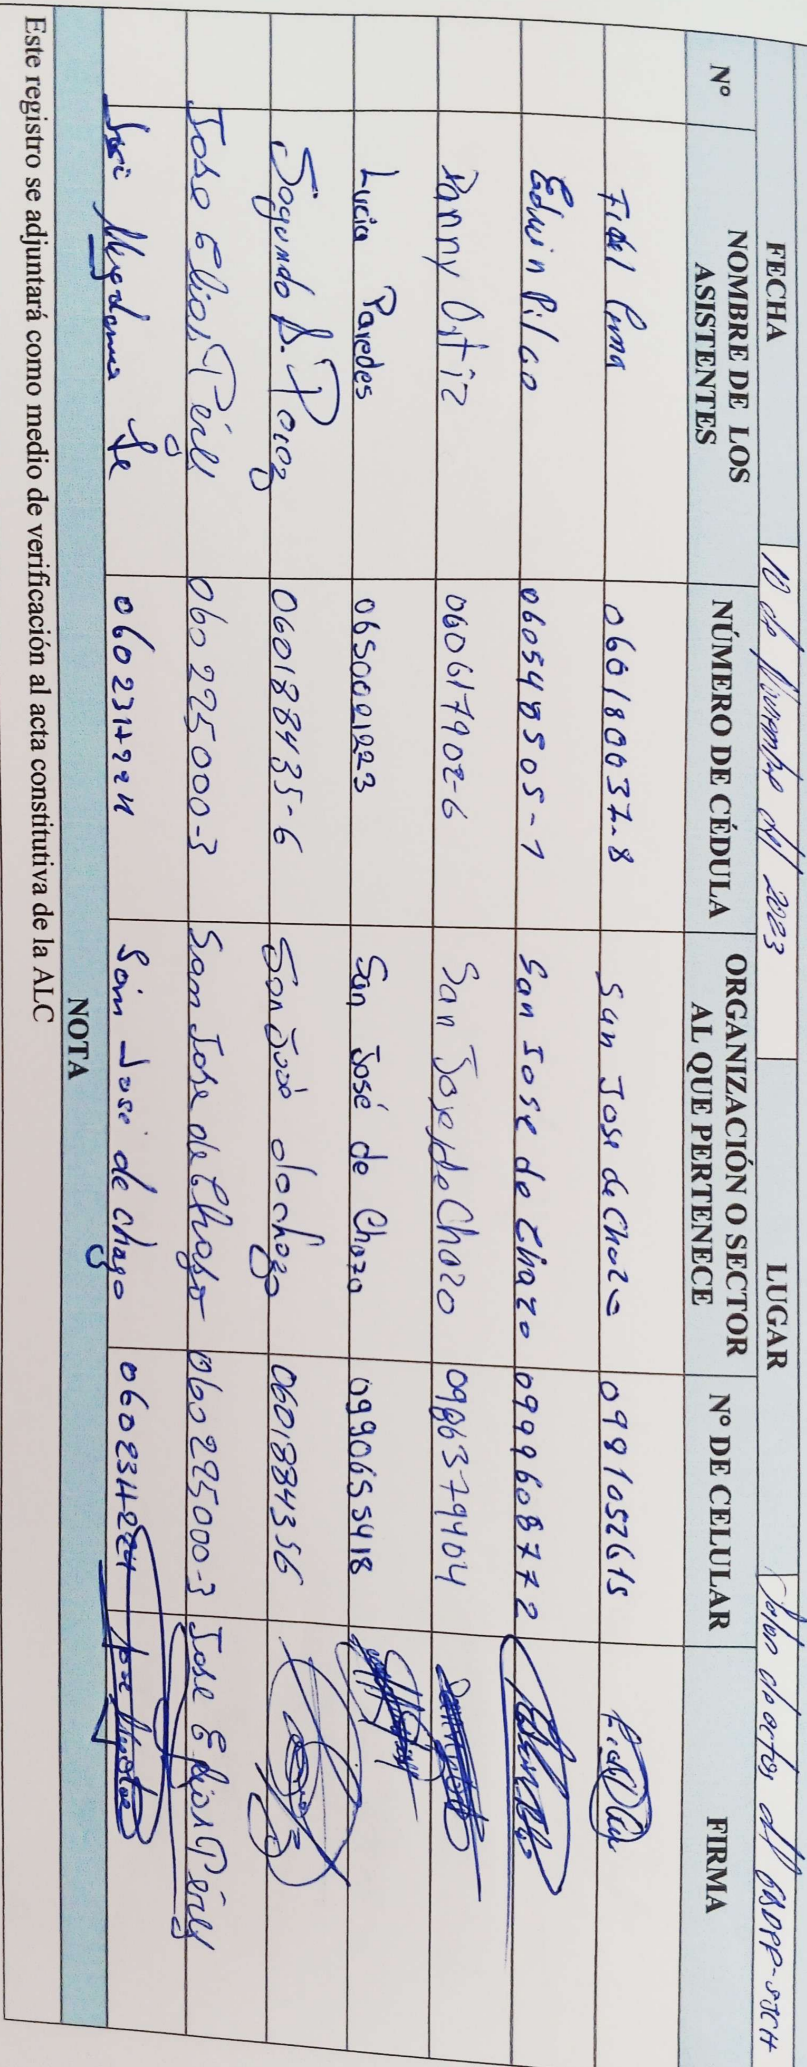 FECHA 10 de Noviembre del 2023 LUGAR Salon de actos del GADPP-SJCH
Nº NOMBRE DE LOS ASISTENTES NÚMERO DE CÉDULA ORGANIZACIÓN O SECTOR AL QUE PERTENECE Nº DE CELULAR FIRMA
Fidel 060180037-8 San Jose de Chazo 0991052615
Edwin Pilco 060548505-1 San Jose de Chazo 0999608772
Danny Ortiz 060617902-6 San Jose de Chazo 0986379404
Lucia Paredes 0650021223 San José de Chazo 0990655418
Segundo 060188435-6 San José de chazo 0601884356
Jose Elias Pérez 060225000-3 San Jose de Chazo 060225000-3 Jose Elias Pérez
José San José de chazo
NOTA
Este registro se adjuntará como medio de verificación al acta constitutiva de la ALC